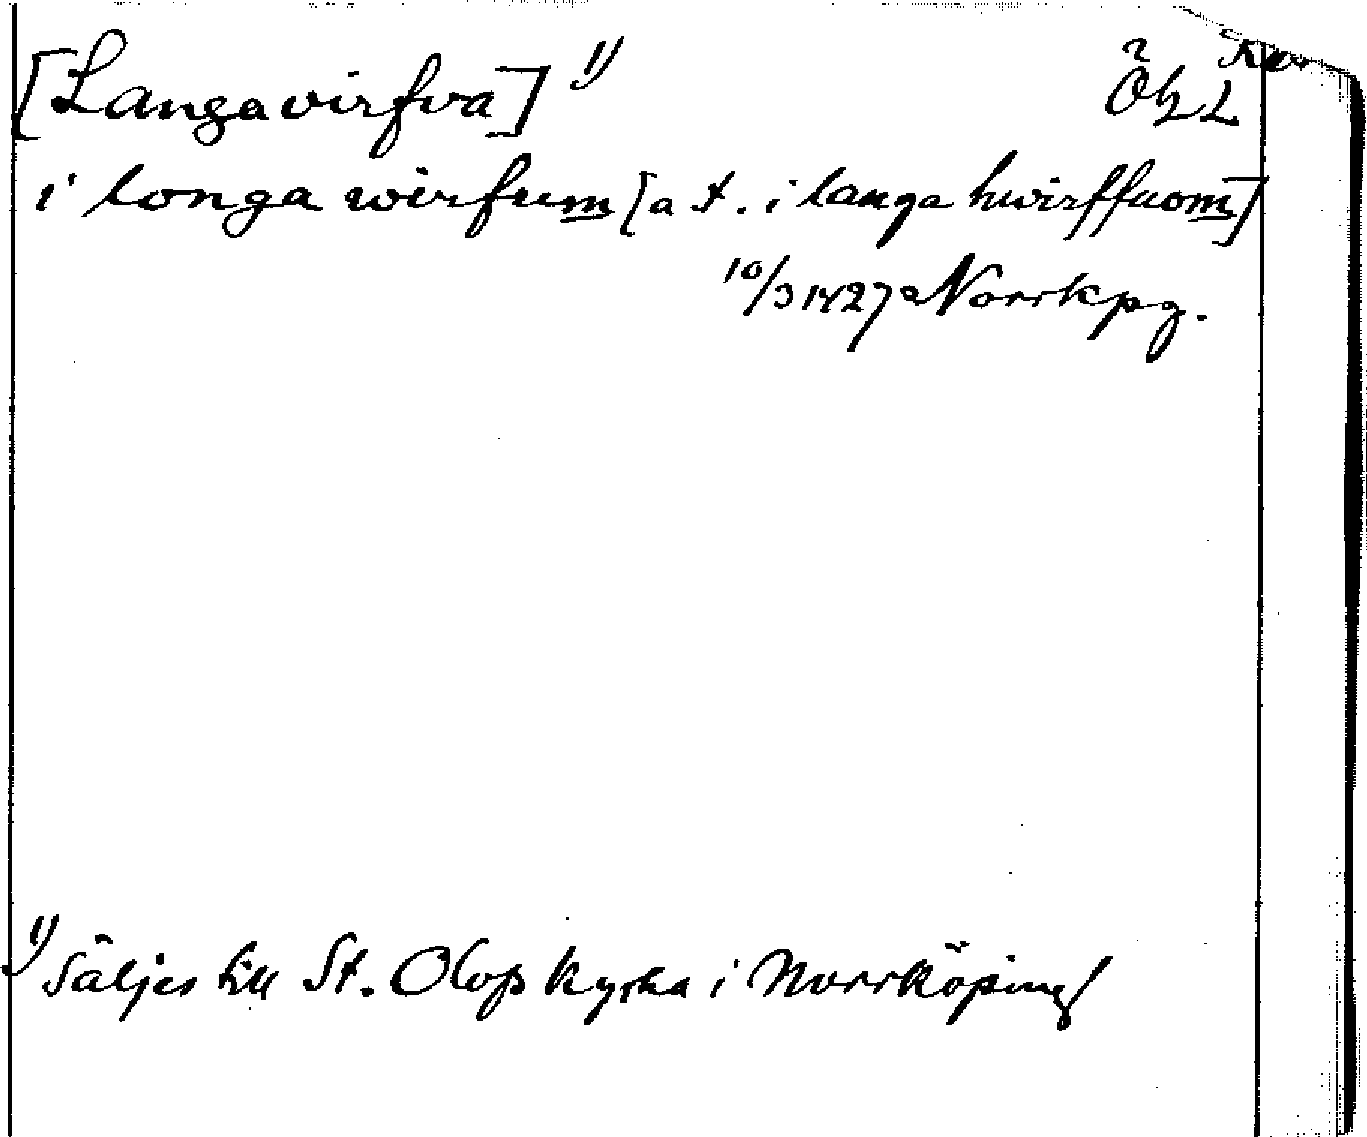 [Langavirfva] 1)
i longa wirfum [a t. i langa hwirffuom]
10/3 1427 Norrkpg.
1) Säljes till St. Olofs kyrka i Norrköping